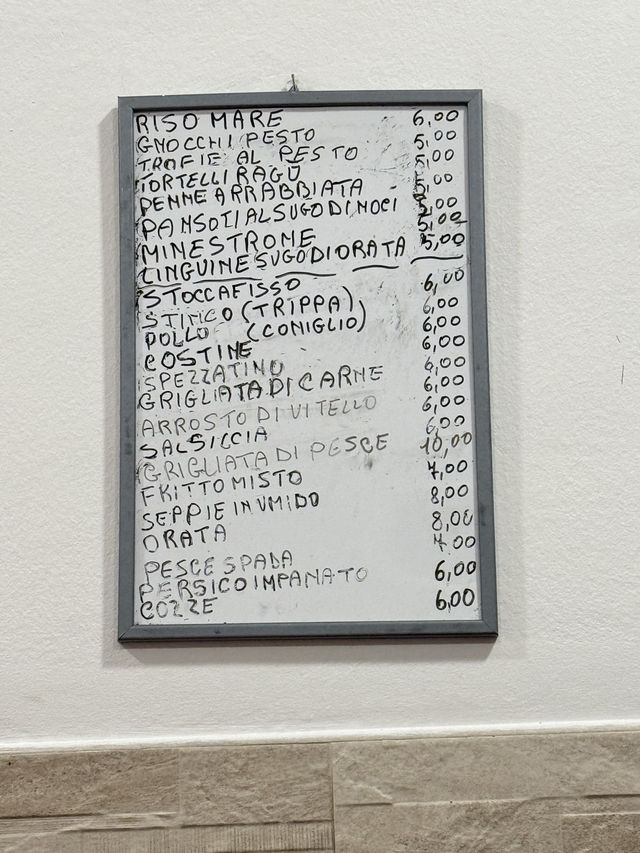 RISO MARE 6,00
GNOCCHI PESTO 5,00
TROFIE AL PESTO 5,00
TORTELLI RAGÙ
PENNE ARRABBIATA 5,00
PANSOTI AL SUGO DI NOCI 5,00
MINESTROME 5,00
LINGUINE SUGO DI ORATA 5,00
STOCCAFISSO 6,00
STINCO (TRIPPA) 6,00
POLLO (CONIGLIO) 6,00
COSTINE 6,00
SPEZZATINO 6,00
GRIGLIATA DI CARNE 6,00
ARROSTO DI VITELLO 6,00
SALSICCIA 6,00
GRIGLIATA DI PESCE 10,00
FRITTO MISTO 7,00
SEPPIE IN UMIDO 8,00
ORATA 8,00
PESCE SPADA 7,00
PERSICO IMPANATO 6,00
COZZE 6,00